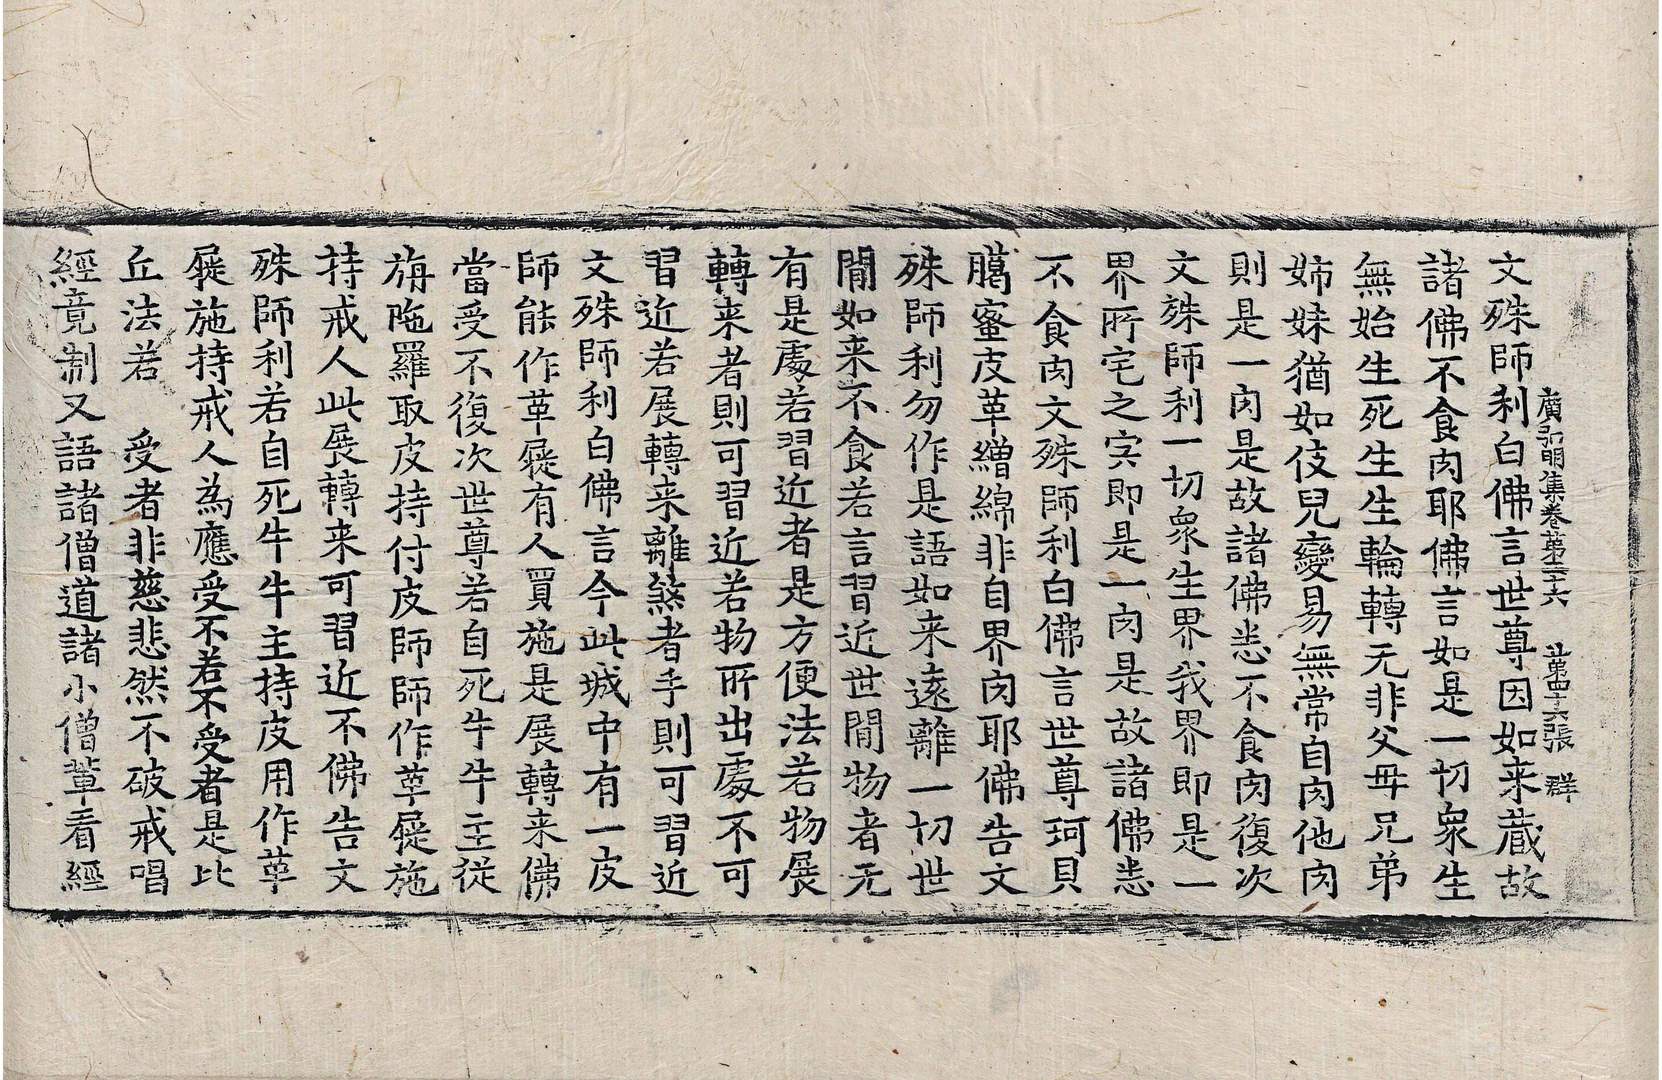 廣弘明集卷第二十六 第四十六張 群
文殊師利白佛言世尊因如来蔵故
諸佛不食肉耶佛言如是一切衆生
無始生死生生輪轉无非父母兄弟
姉妹猶如伎兒變易無常自肉他肉
則是一肉是故諸佛悉不食肉復次
文殊師利一切衆生界我界即是一
界所宅之宍即是一肉是故諸佛悉
不食肉文殊師利白佛言世尊珂貝
臈蜜皮革繒綿非自界肉耶佛告文
殊師利勿作是語如来逺離一切世
間如来不食若言習近世間物者无
有是處若習近者是方便法若物展
轉来者則可習近若物所出處不可
習近若展轉来離煞者手則可習近
文殊師利白佛言今此城中有一皮
師能作革屣有人買施是展轉来佛
當受不復次世尊若自死牛牛主從
旃陁羅取皮持付皮師師作革屣施
持戒人此展轉来可習近不佛告文
殊師利若自死牛牛主持皮用作革
屣施持戒人為應受不若不受者是比
丘法若 受者非慈悲然不破戒唱
經竟制又語諸僧道諸小僧輩看經